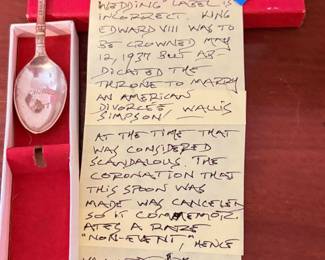 WEDDING" LABEL IS
INCORRECT. KING
EDWARD VIII WAS TO
BE CROWNED MAY
12, 1937 BUT AB-
DICATED THE
THRONE TO MARRY
AN AMERICAN
DIVORCEE WALLIS
SIMPSON/
AT THE TIME THAT
WAS CONSIDERED
SCANDALOUS. THE
CORONATION THAT
THIS SPOON WAS
MADE WAS CANCELEN
SO IT COMMEMOR-
ATES A RARE
"NON-EVENT", HENCE